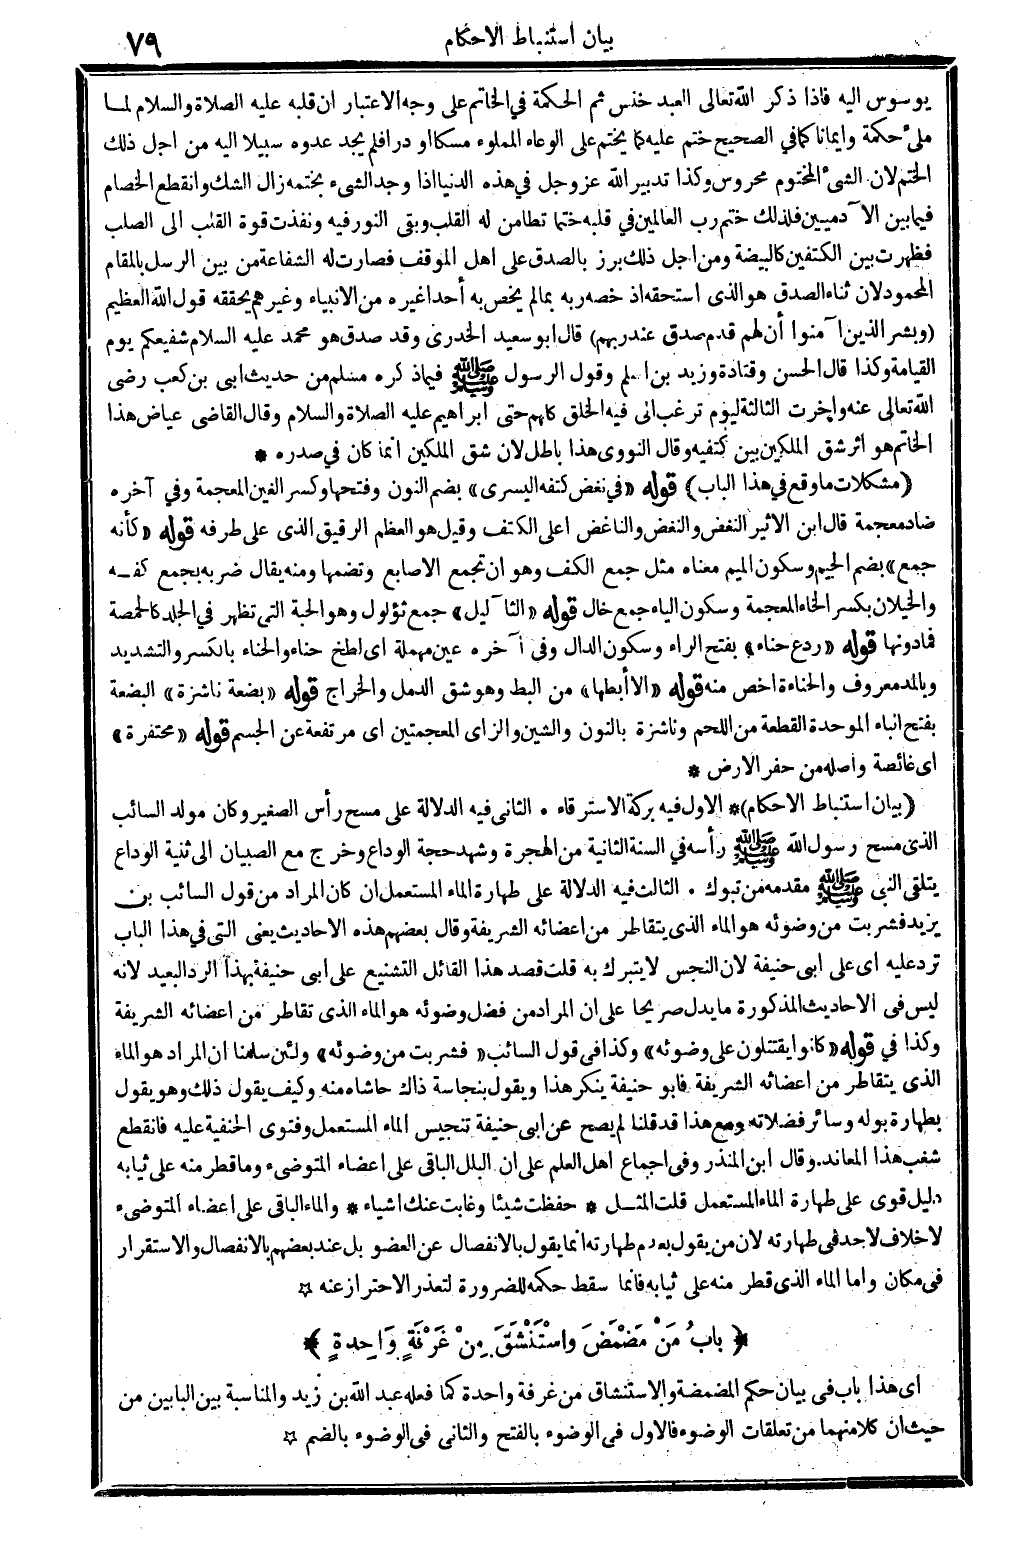 بيان استنباط الاحكام
٧٩
يوسوس اليه فاذا ذكر الله تعالى العبد خنس ثم الحكمة في الخاتم على وجه الاعتبار ان قلبه عليه الصلاة والسلام لما
ملىء حكمة وايمانا كما في الصحيح ختم عليه كما يختم على الوعاء المملوء مسكا او درا فلم يجد عدوه سبيلا اليه من اجل ذلك
الختم لان الشىء المختوم محروس وكذا تدبير الله عز وجل في هذه الدنيا اذا وجد الشىء بختمه زال الشك وانقطع الخصام
فيما بين الآدميين فلذلك ختم رب العالمين في قلبه ختما تطامن له القلب وبقى النور فيه ونفذت قوة القلب الى الصلب
فظهرت بين الكتفين كالبيضة ومن اجل ذلك برز بالصدق على اهل الموقف فصارت له الشفاعة من بين الرسل بالمقام
المحمود لان ثناء الصدق هو الذى استحقه اذ خصه ربه بما لم يخص به أحدا غيره من الانبياء وغيرهم يحققه قول الله العظيم
(وبشر الذين آمنوا أن لهم قدم صدق عند ربهم) قال ابو سعيد الخدرى وقد صدق هو محمد عليه السلام شفيعكم يوم
القيامة وكذا قال الحسن وقتادة وزيد بن اسلم وقول الرسول ﷺ فيما ذكره مسلم من حديث ابى بن كعب رضى
الله تعالى عنه واخرت الثالثة ليوم ترغب الى فيه الخلق كلهم حتى ابراهيم عليه الصلاة والسلام وقال القاضى عياض هذا
الخاتم هو اثر شق الملكين بين كتفيه وقال النووى هذا باطل لان شق الملكين انما كان في صدره *
(مشكلات ما وقع في هذا الباب) قوله «في نغض كتفه اليسرى» بضم النون وفتحها وكسر الغين المعجمة وفي آخره
ضاد معجمة قال ابن الاثير النغض والنغض والناغض اعلى الكتف وقيل هو العظم الرقيق الذى على طرفه قوله «كأنه
جمع» بضم الجيم وسكون الميم معناه مثل جمع الكف وهو ان تجمع الاصابع وتضمها ومنه يقال ضربه بجمع كفه
والخيلان بكسر الخاء المعجمة وسكون الياء جمع خال قوله «الثآليل» جمع ثؤلول وهو الحبة التى تظهر في الجلد كالحمصة
فمادونها قوله «ردع حناء» بفتح الراء وسكون الدال وفى آخره عين مهملة اى لطخ حناء والحناء بالكسر والتشديد
وبالمد معروف والحناءة اخص منه قوله «الا أبطها» من البط وهو شق الدمل والخراج قوله «بضعة ناشزة» البضعة
بفتح الباء الموحدة القطعة من اللحم وناشزة بالنون والشين والزاى المعجمتين اى مرتفعة عن الجسم قوله «محتفرة»
اى غائصة واصله من حفر الارض *
(بيان استنباط الاحكام)* الاول فيه بركة الاسترقاء . الثانى فيه الدلالة على مسح رأس الصغير وكان مولد السائب
الذى مسح رسول الله ﷺ رأسه في السنة الثانية من الهجرة وشهد حجة الوداع وخرج مع الصبيان الى ثنية الوداع
يتلقى النبى ﷺ مقدمه من تبوك . الثالث فيه الدلالة على طهارة الماء المستعمل ان كان المراد من قول السائب بن
يزيد فشربت من وضوئه هو الماء الذى يتقاطر من اعضائه الشريفة وقال بعضهم هذه الاحاديث يعنى التى في هذا الباب
ترد عليه اى على ابى حنيفة لان النجس لا يتبرك به قلت قصد هذا القائل التشنيع على ابى حنيفة بهذا الرد البعيد لانه
ليس فى الاحاديث المذكورة ما يدل صريحا على ان المراد من فضل وضوئه هو الماء الذى تقاطر من اعضائه الشريفة
وكذا في قوله «كانوا يقتتلون على وضوئه» وكذا فى قول السائب «فشربت من وضوئه» ولئن سلمنا ان المراد هو الماء
الذى يتقاطر من اعضائه الشريفة فابو حنيفة ينكر هذا ويقول بنجاسة ذاك حاشاه منه وكيف يقول ذلك وهو يقول
بطهارة بوله وسائر فضلاته ومع هذا قد قلنا لم يصح عن ابى حنيفة تنجيس الماء المستعمل وفتوى الحنفية عليه فانقطع
شغب هذا المعاند. وقال ابن المنذر وفى اجماع اهل العلم على ان البلل الباقى على اعضاء المتوضىء وما قطر منه على ثيابه
دليل قوى على طهارة الماء المستعمل قلت المثل * حفظت شيئا وغابت عنك اشياء * والماء الباقى على اعضاء المتوضىء
لا خلاف لاحد فى طهارته لان من يقول بعدم طهارته انما يقول بالانفصال عن العضو بل عند بعضهم بالانفصال والاستقرار
فى مكان واما الماء الذى قطر منه على ثيابه فانما سقط حكمه للضرورة لتعذر الاحتراز عنه ☆
﴿ بابُ مَنْ مَضْمَضَ وَاسْتَنْشَقَ مِنْ غَرْفَةٍ وَاحِدةٍ ﴾
اى هذا باب فى بيان حكم المضمضة والاستنشاق من غرفة واحدة كما فعله عبد الله بن زيد والمناسبة بين البابين من
حيث ان كلا منهما من تعلقات الوضوء فالاول فى الوضوء بالفتح والثانى فى الوضوء بالضم ☆